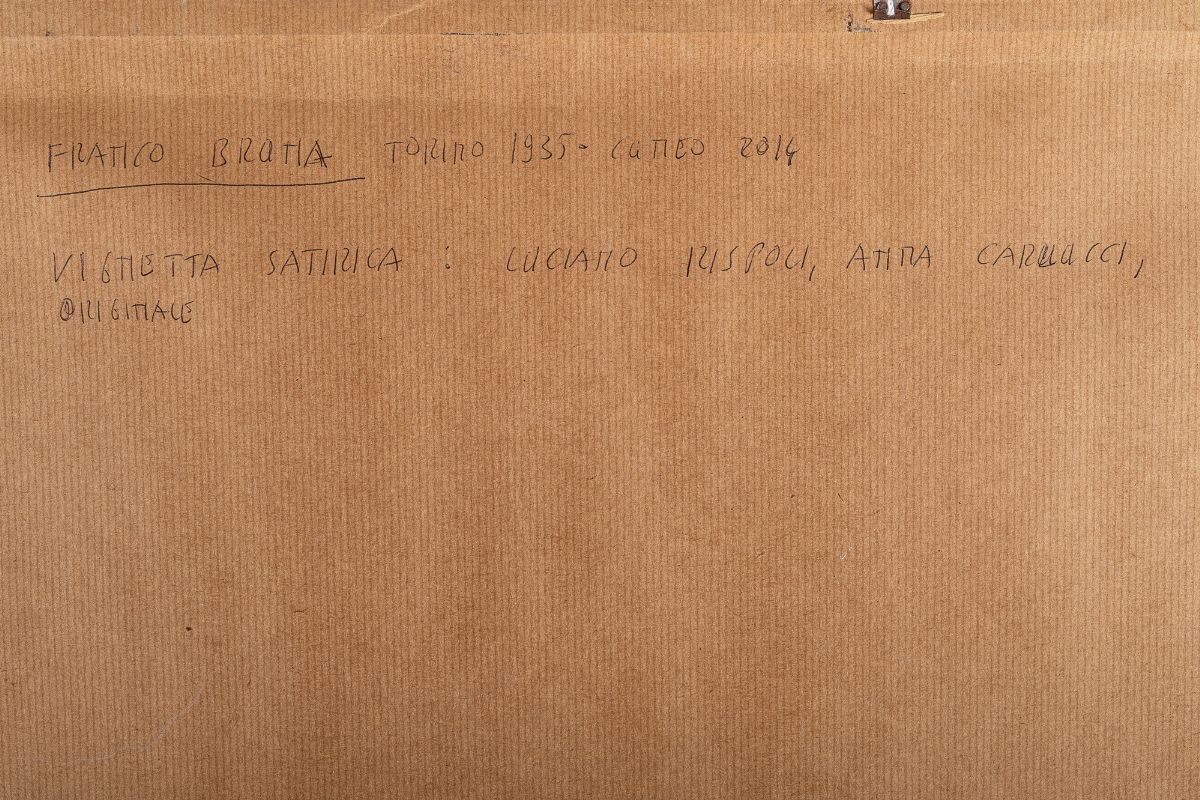 FRANCO BRUNA TORINO 1935- CUNEO 2014
VIGNETTA SATIRICA : LUCIANO RISPOLI, ANNA CARLUCCI,
ORIGINALE